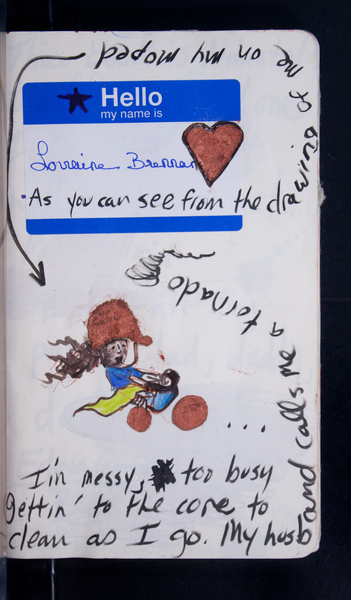 Hello
my name is
Lorraine Brennan
As you can see from the drawing of me
on my moped
I'm messy, too busy
gettin' to the core to
clean as I go. My husband calls me
a tornado